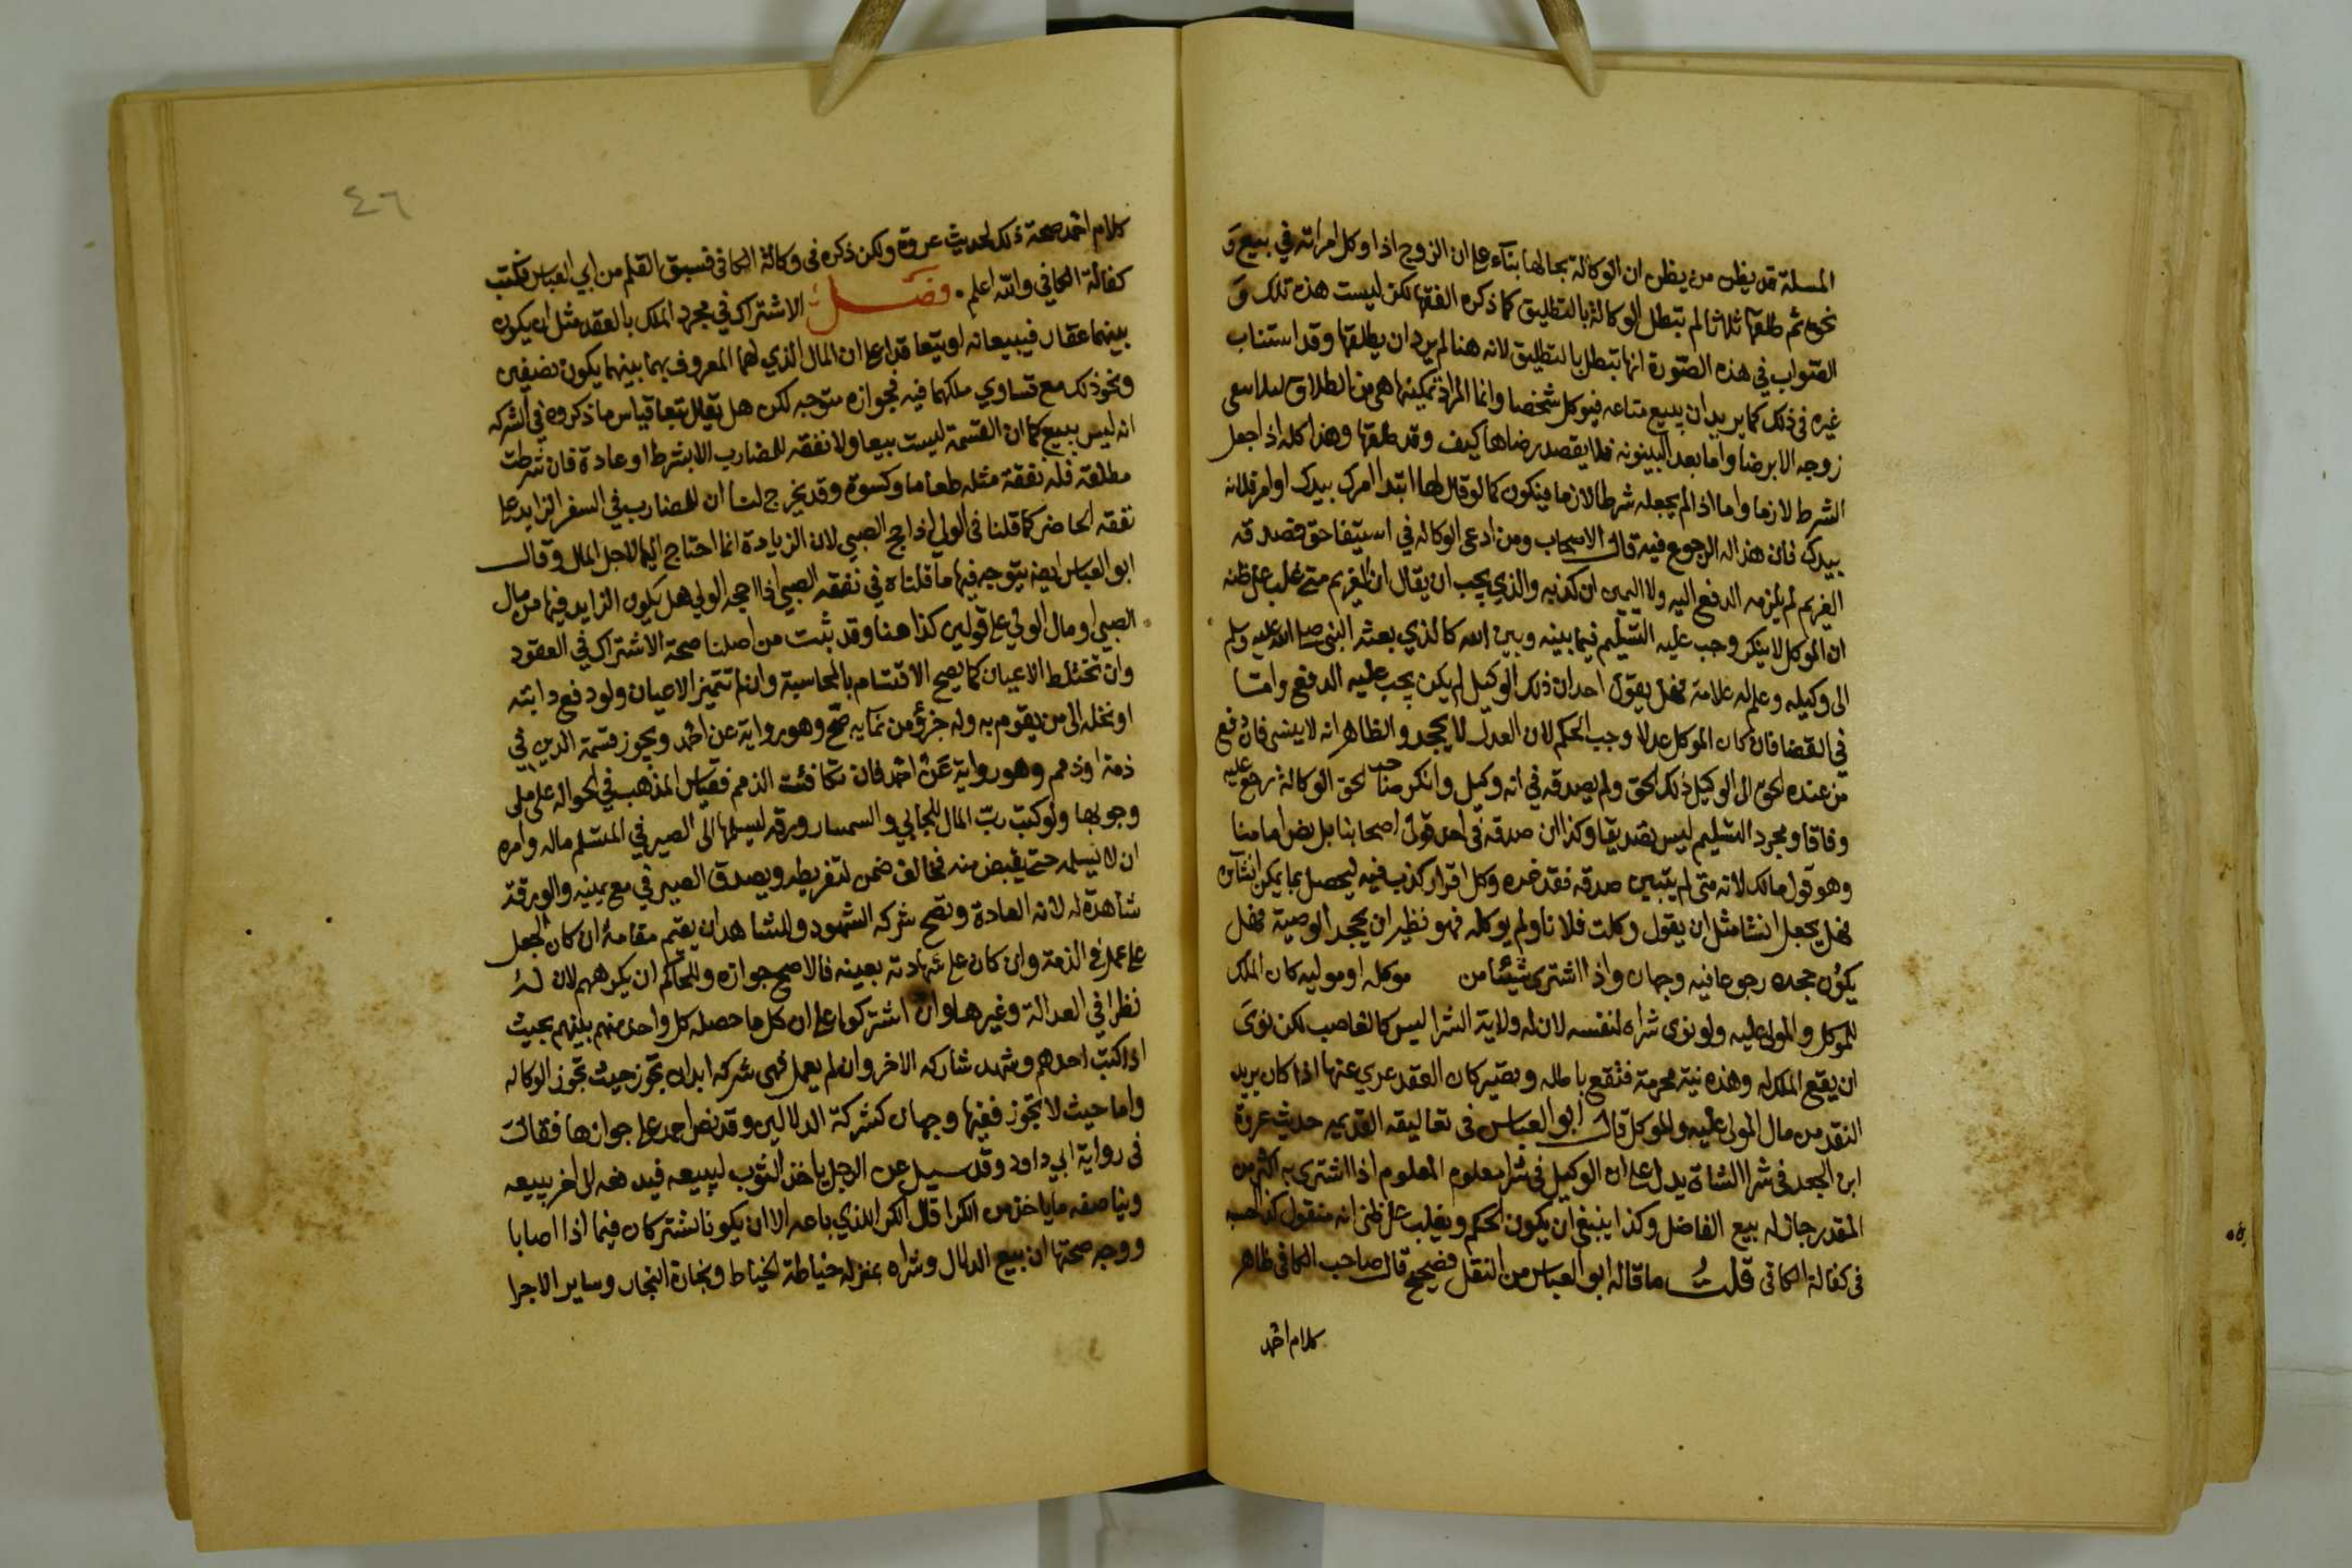 المسلة قد يظن من يظن ان الوكالة بحالها بناء على ان الزوج اذا وكل امراته في بيع و
نحوه ثم طلقها ثلاثا لم تبطل الوكالة بالتطليق كما ذكره الفقها لكن ليست هذه تلك و
الصواب في هذه الصورة انها تبطل بالتطليق لانه هنا لم يرد ان يطلقها وقد استناب
غيره في ذلك كما يريد ان يبيع متاعه فيوكل شخصا وانما المراد تمكينها هي من الطلاق
زوجه الا برضا واما بعد البينونه فلا يقصد رضاها كيف وقد طلقها وهذا كله اذا جعل
الشرط لازما واما اذا لم يجعله شرطا لازما فيكون كما لو قال لها ابتدا امرك بيدك او امر فلانه
بيدك فان هذا له الرجوع فيه قال الاصحاب ومن ادعى الوكاله في استيفا حق فصدقه
الغريم لم يلزمه الدفع اليه ولا اليمين ان كذبه والذي يجب ان يقال ان الغريم متى غلب على ظنه
ان الموكل لا ينكر وجب عليه التسليم فيما بينه وبين الله كالذي بعثه النبي صلى الله عليه وسلم
الى وكيله وعلم له علامة فهل يقول احد ان ذلك الوكيل لم يكن يجب عليه الدفع واما
في القضا فان كان الموكل عدلا وجب الحكم لان العدل لا يجحد والظاهر انه لا يستثنى فان دفع
من عنده الحق الى الوكيل ذلك الحق ولم يصدقه في انه وكيل وانكر صاحب الحق الوكالة رجع عليه
وفاقا ومجرد التسليم ليس تصديقا وكذا ان صدقه في احد قولي اصحابنا بل نص امامنا
وهو قول مالك لانه متى لم يتبين صدقه فقد غره وكل اقرار كذب فيه ليحصل بما يمكن انشاؤه
فهل يجعل انشا مثل ان يقول وكلت فلانا ولم يوكله فهو نظير ان يجحد الوصية فهل
يكون جحده رجوعا فيه وجهان واذا اشترى شيئا من موكله او موليه كان الملك
للموكل والمولى عليه ولو نوى شراه لنفسه لان له ولاية الشرا ليس كالغاصب لكن لو نوى
ان يقع الملك له وهذه نية محرمة فتقع باطله ويصير كان العقد عري عنها اذا كان يريد
النقد من مال المولى عليه والموكل قال ابو العباس في تعاليقه القديمه حديث عروة
ابن الجعد في شرا الشاة يدل على ان الوكيل في شرا معلوم المعلوم اذا اشترى به اكثر من
المقدر جاز له بيع الفاضل وكذا ينبغي ان يكون الحكم ويغلب على ظني انه منقول كذا
في كفالة الكافي قلت ما قاله ابو العباس من النقل فصحيح قال صاحب الكافي ظاهر
كلام احمد
٤٦
كلام احمد صحة ذلك لحديث عروة ولكن ذكره في وكالة الكافي فسبق القلم من ابي العباس فكتب
كفالة الكافي والله اعلم . فصل الاشتراك في مجرد الملك بالعقد مثل ان يكون
بينهما عقار فيبيعانه او يتعاقدا على ان المال الذي لهما المعروف بهما بينهما يكون نصفين
ونحو ذلك مع تساوي ملكهما فيه فجوازه متوجه لكن هل يقال بيعا قياس ما ذكروه في الشركه
انه ليس ببيع كما ان القسمة ليست بيعا ولا نفقه للمضارب الا بشرط او عادة فان شرطت
مطلقة فله نفقة مثله طعاما وكسوة وقد يخرج لنا ان للمضارب في السفر الزايد على
نفقه الحاضر كما قلنا في الولي اذا حج الصبي لان الزيادة انما احتاج اليها لاجل المال وقال
ابو العباس ايضا يتوجه فيها ما قلناه في نفقه الصبي اذا احجه الولي هل يكون الزايد فيها من مال
الصبي او مال الولي على قولين كذا هنا وقد ثبت من اصلنا صحة الاشتراك في العقود
وان تختلط الاعيان كما يصح الاقتسام بالمحاسبة وان لم تتميز الاعيان ولو دفع دابته
او نخله الى من يقوم به وله جزؤ من نمايه صح وهو رواية عن احمد ويجوز قسمة الدين في
ذمة او ذمم وهو رواية عن احمد فان تكافئت الذمم فقياس المذهب في الحواله على ملى
وجوبها ولو كتب رب المال للجابي والسمسار ورقه ليسلمها الى الصيرفي المتسلم ماله وامره
ان لا يسلمه حتى يقبض منه فخالف ضمن لتفريطه ويصدق الصيرفي مع يمينه والورقة
شاهدة له لانه العادة وتصح شركه الشهود وللشاهد ان يقيم مقامه ان كان الجعل
على عمل في الذمة وان كان على شهادته بعينه فالاصح جوازه وللحاكم ان يكرههم لان له
نظرا في العدالة وغيرها وان اشتركوا على ان كل ما حصله كل واحد منهم بينهم بحيث
اذا كتب احدهم وشهد شاركه الاخر وان لم يعمل فهي شركه ابدان تجوز حيث تجوز الوكاله
واما حيث لا تجوز ففيها وجهان كشركة الدلالين وقد نص احمد على جوازها فقال
في رواية ابي داود وقد سيل عن الرجل ياخذ الثوب ليبيعه فيدفعه الى اخر يبيعه
ويناصفه ما ياخذ من الكرا قال الكرا للذي باعه الا ان يكونا يشتركان فيما اذا اصابا
ووجه صحتها ان بيع الدلال وشراه بمنزله خياطة الخياط ونجارة النجار وساير الاجرا